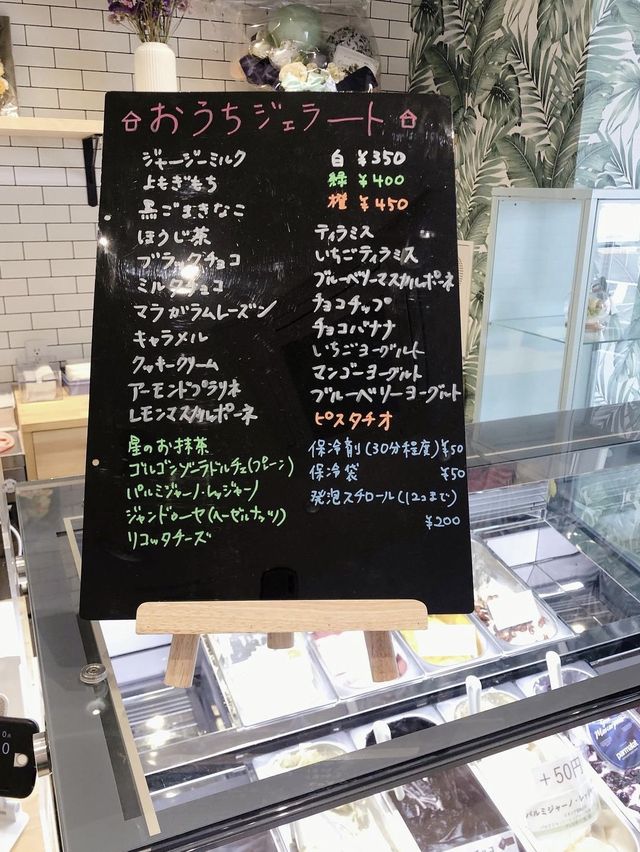 おうちジェラート
ジャージーミルク
よもぎもち
黒ごまきなこ
ほうじ茶
ブラックチョコ
ミルクチョコ
マラガラムレーズン
キャラメル
クッキークリーム
アーモンドプラリネ
レモンマスカルポーネ
星のお抹茶
ゴルゴンゾーラドルチェ(プーン)
パルミジャーノ・レッジャーノ
ジャンドゥーヤ(ヘーゼルナッツ)
リコッタチーズ
白 ¥350
緑 ¥400
橙 ¥450
ティラミス
いちごティラミス
ブルーベリーマスカルポーネ
チョコチップ
チョコバナナ
いちごヨーグルト
マンゴーヨーグルト
ブルーベリーヨーグルト
ピスタチオ
保冷剤(30分程度)¥50
保冷袋 ¥50
発泡スチロール(12コまで)
¥200
+50円
パルミジャーノ・レ